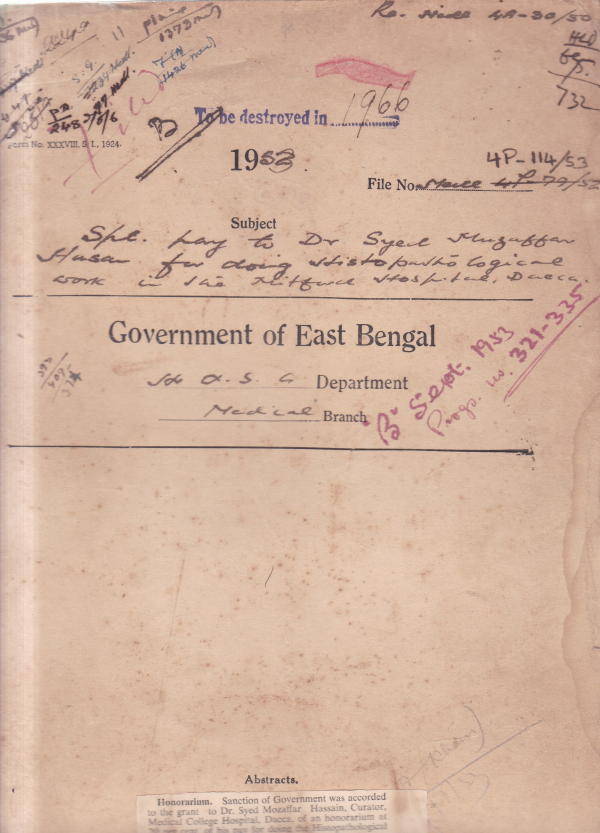 11 plain
1373 med
1426 med
Re. Medl 4A-30/50
732
To be destroyed in 1966
B
Form No. XXXVIII. S. I., 1924.
1953
4P-114/53
File No. Medl 4P-79/52
Subject
Spl. pay to Dr Syed Muzaffar
Husan for doing Histopathological
work in the Mitford Hospital, Dacca.
Government of East Bengal
H & S. G Department
Medical Branch
"B" Sept. 1953
Progs. no. 321-335
Abstracts.
Honorarium. Sanction of Government was accorded
to the grant to Dr. Syed Mozaffar Hassain, Curator,
Medical College Hospital, Dacca, of an honorarium at
20 per cent. of his pay for doing the Histopathological